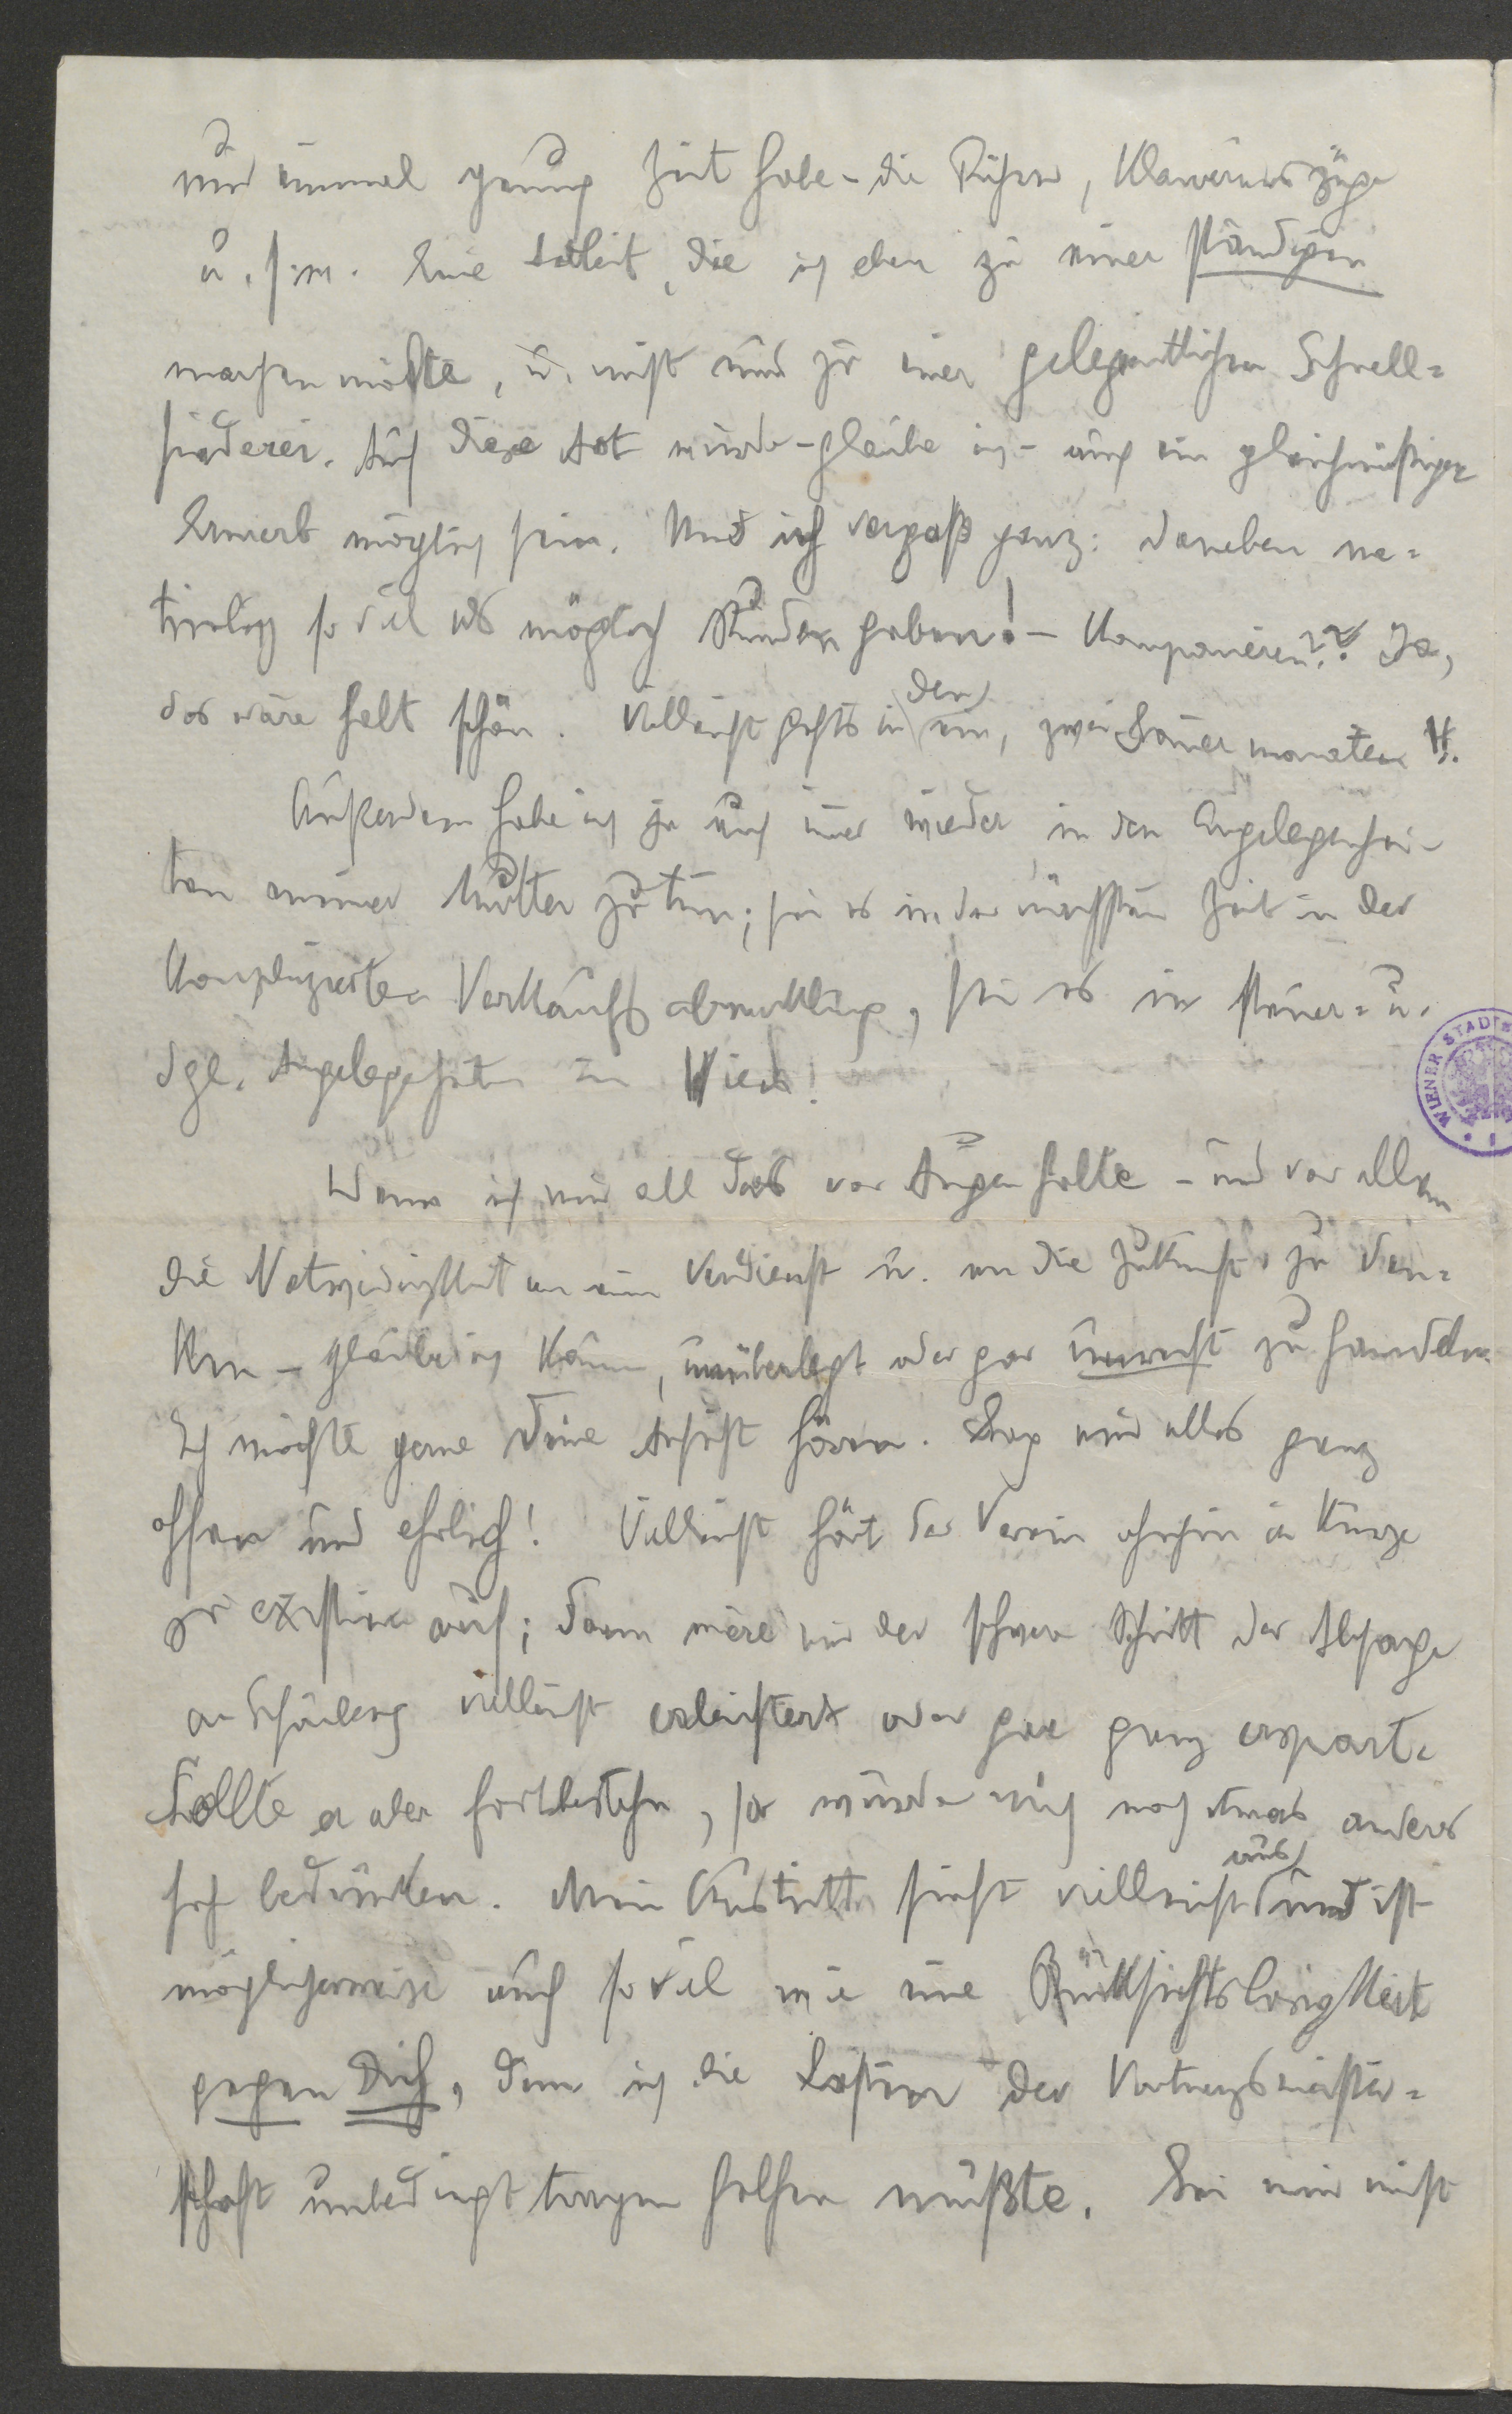 nun einmal genug Zeit habe – die Bücher, Klavierauszüge
u.s.w. Eine Arbeit, die ich eben zu einer ständigen
machen möchte, u. nicht nur zu einer gelegentlichen Schnell=
siederei. Auf diese Art würde – glaube ich – auch ein gleichmäßiger
Erwerb möglich sein. Und ich vergaß ganz: daneben na=
türlich so viel als möglich Stunden geben! – Komponieren?? Ja,
das wäre halt schön. Vielleicht gehts in den
ein, zwei Sommermonaten
Außerdem habe ich ja auch immer wieder in den Angelegenhei=
ten meiner Mutter zu tun; sei es in der nächsten Zeit in der
komplizierten Verkaufsabwicklung, sei es in Steuer= u.
dgl. Angelegenheiten in Wien!
Wenn ich mir all das vor Augen halte – und vor allem
die Notwendigkeit an einen Verdienst u. an die Zukunft zu den=
ken – glaube ich kaum, unüberlegt oder gar unrecht zu handeln.
Ich möchte gerne Deine Ansicht hören. Sag mir alles ganz
offen und ehrlich! Vielleicht hört der Verein ohnehin in Kürze
zu existieren auf; dann wäre mir der schwere Schritt der Absage
an Schönberg vielleicht erleichtert oder gar ganz erspart.
Sollte er aber fortbestehn, so würde mich noch etwas anderes
sehr bedrücken. Mein Austritt sieht vielleicht aus und ist
möglicherweise auch so viel wie eine Rücksichtslosigkeit
gegen Dich, dem ich die Lasten der Vortragsmeister=
schaft unbedingt tragen helfen müßte. Sei mir nicht
WIENER STADT